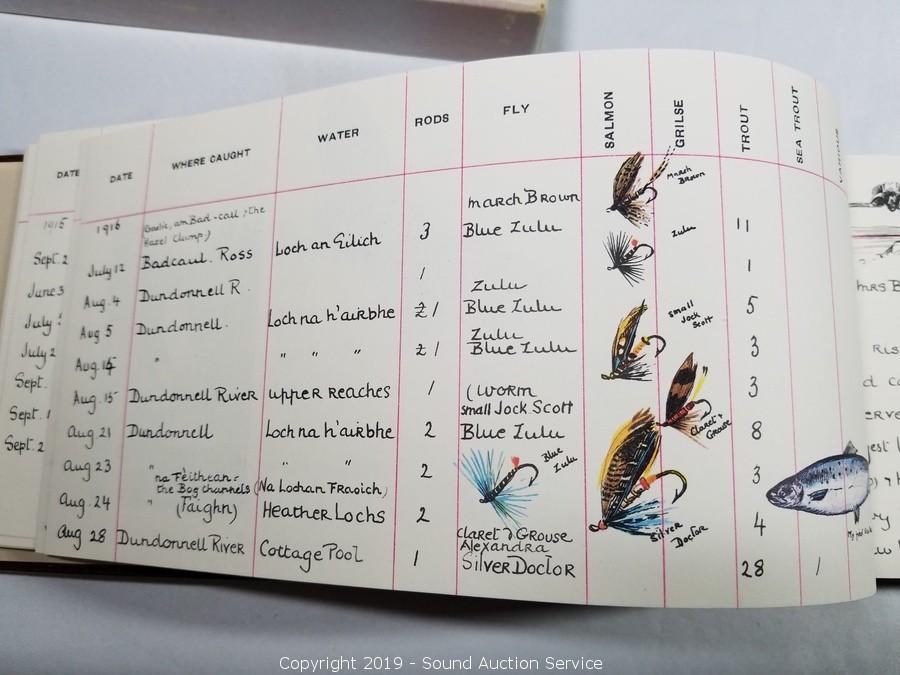 DATE
DATE WHERE CAUGHT WATER RODS FLY SALMON GRILSE TROUT SEA TROUT VARIOUS
1915
1916 am Bad-call, the
Hazel Clump) March Brown March Brown
Sept. 2 July 12 Badcaul. Ross Loch an Eilich 3 Blue Zulu Zulu 11
June 3 Aug. 4 Dundonnell R. 1 Zulu 1
July Aug 5 Dundonnell. Loch na h'airbhe 2 1 Blue Zulu small Jock Scott 5
Zulu
July 2 Aug. 15 " " " " 2 1 Blue Zulu 3
Sept. Aug. 15 Dundonnell River upper reaches 1 (worm 3
small Jock Scott Claret & Grouse
Sept. 1 Aug 21 Dundonnell Loch na h'airbhe 2 Blue Zulu 8
Sept. 2 Aug 23 " " " 2 Blue Zulu 3
na Fèithean.
the Bog channels (Na Lochan Fraoich)
Aug. 24 " (Faighn) Heather Lochs 2 Claret & Grouse Silver Doctor 4
Alexandra
Aug 28 Dundonnell River Cottage Pool 1 Silver Doctor 28 1
Mrs B
Copyright 2019 - Sound Auction Service